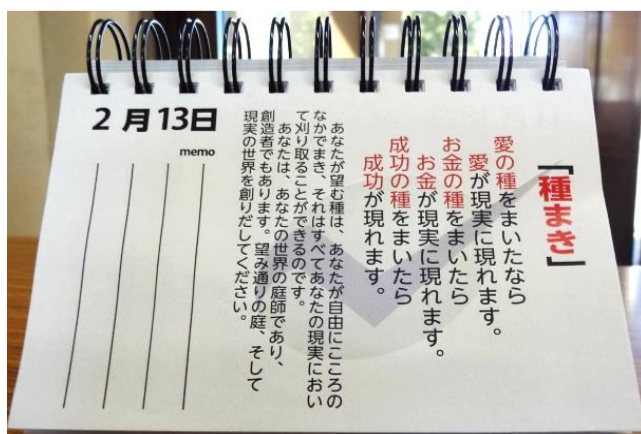 「種まき」
愛の種をまいたなら
愛が現実に現れます。
お金の種をまいたら
お金が現実に現れます。
成功の種をまいたら
成功が現れます。
あなたが望む種は、あなたが自由にこころの
なかでまき、それはすべてあなたの現実におい
て刈り取ることができるのです。
あなたは、あなたの世界の庭師であり、
創造者でもあります。望み通りの庭、そして
現実の世界を創りだしてください。
2月13日
memo